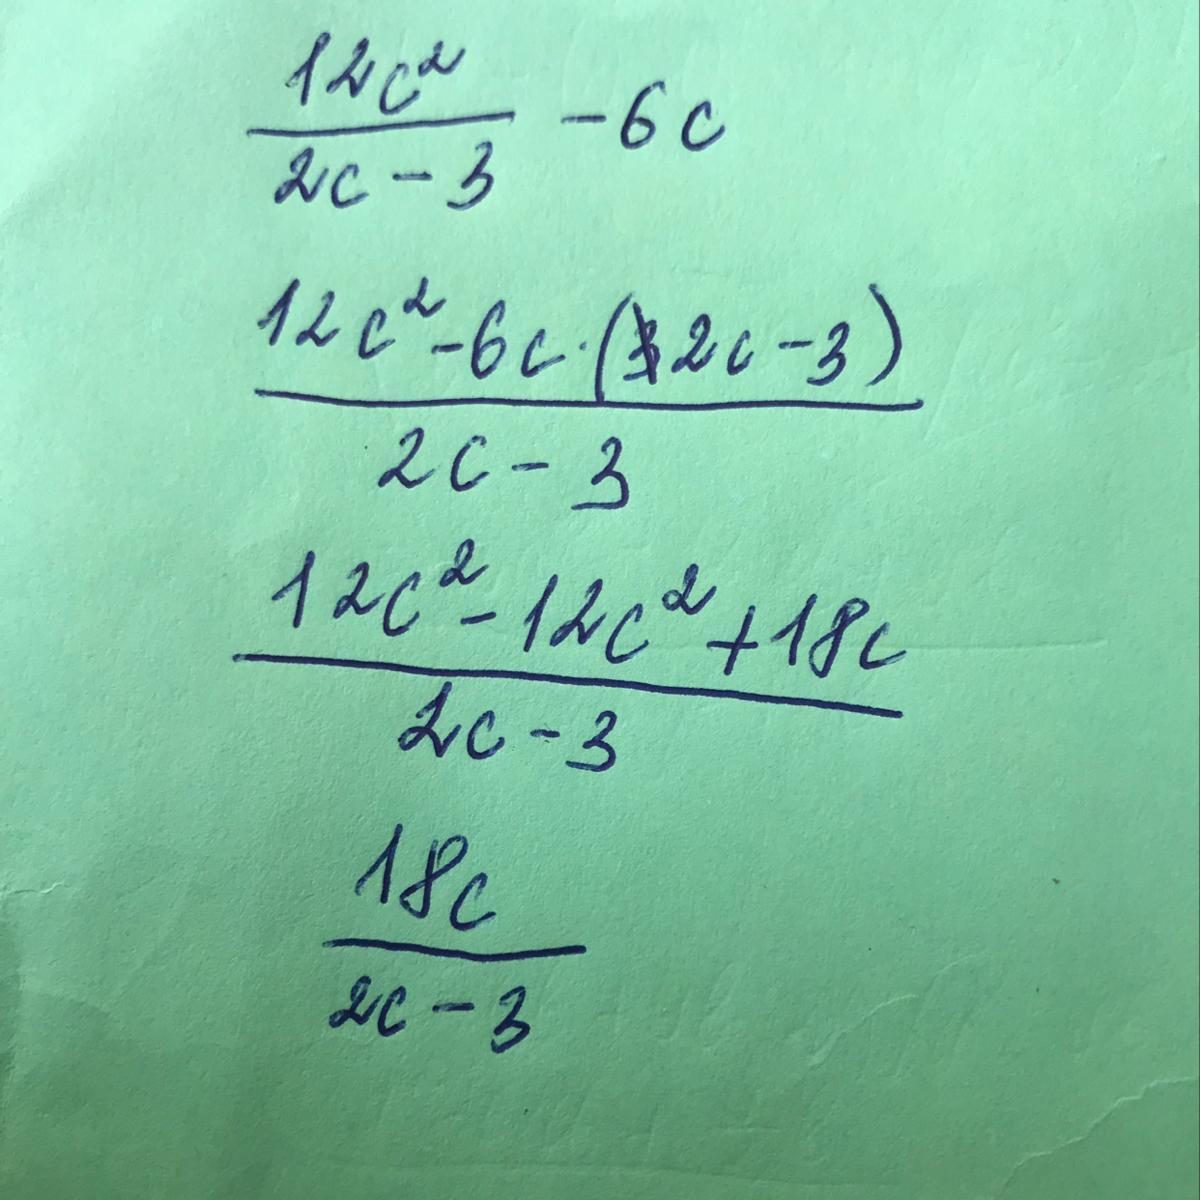 12c²
2c - 3
- 6c
12c² - 6c · (2c - 3)
2c - 3
12c² - 12c² + 18c
2c - 3
18c
2c - 3